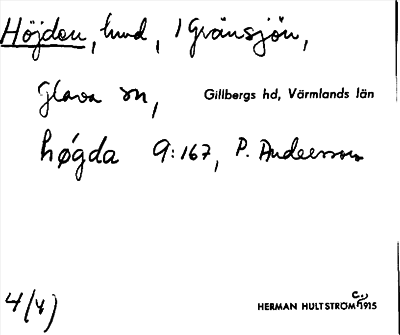 Höjden, hmd, i Gränsjön,
Glava sn, Gillbergs hd, Värmlands län
høgda 9:167, P. Andersson
4(4)
HERMAN HULTSTRÖM c. 1915